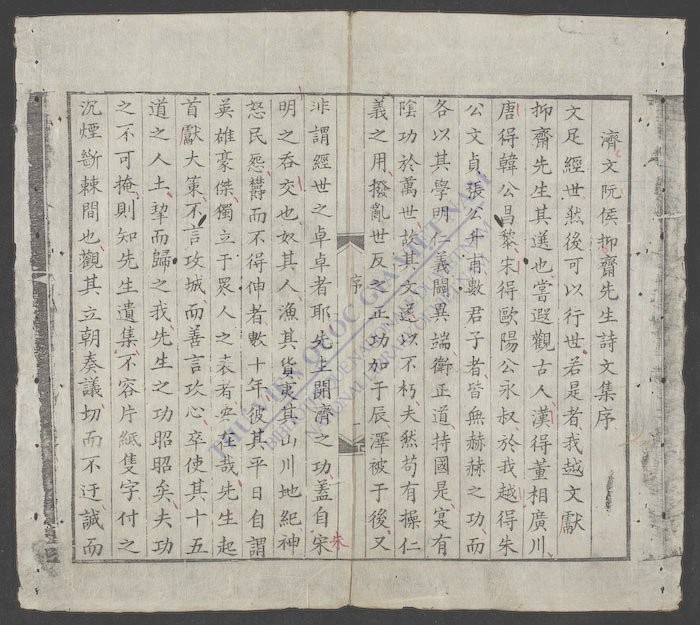 濟文阮侯抑齋先生詩文集序
文足經世然後可以行世若是者我越文獻
抑齋先生其選也嘗遐觀古人漢得董相廣川
唐得韓公昌黎宋得歐陽公永叔於我越得朱
公文貞張公升甫數君子者皆無赫赫之功而
各以其學明仁義闢異端衛正道持國是寔有
陰功於萬世故其文遂以不朽夫然苟有操仁
義之用撥亂世反之正功加于辰澤被于後又
序
一
渄謂經世之卓卓者耶先生開濟之功蓋自宋
朱
明之吞交也奴其人漁其貨夷其山川地紀神
怒民怨欝而不得伸者數十年彼其平日自謂
英雄豪傑獨立于眾人之表者安在哉先生起
首獻大策不言攻城而善言攻心卒使其十五
道之人土挈而歸之我先生之功昭昭矣夫功
之不可掩則知先生遺集不容片紙隻字付之
沉煙斷棘間也觀其立朝奏議切而不迂誠而
THƯ VIỆN QUỐC GIA VIỆT NAM